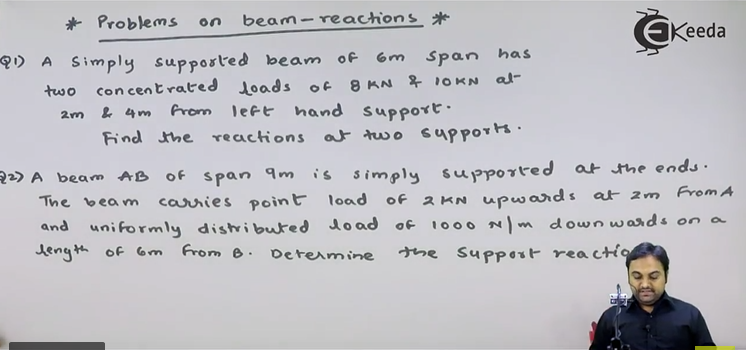 * Problems on beam-reactions *
Ekeeda
Q1) A simply supported beam of 6m span has
two concentrated loads of 8 KN & 10 KN at
2m & 4m from left hand support.
Find the reactions at two supports.
Q2) A beam AB of span 9m is simply supported at the ends.
The beam carries point load of 2 KN upwards at 2m from A
and uniformly distributed load of 1000 N/m downwards on a
length of 6m from B. Determine the support